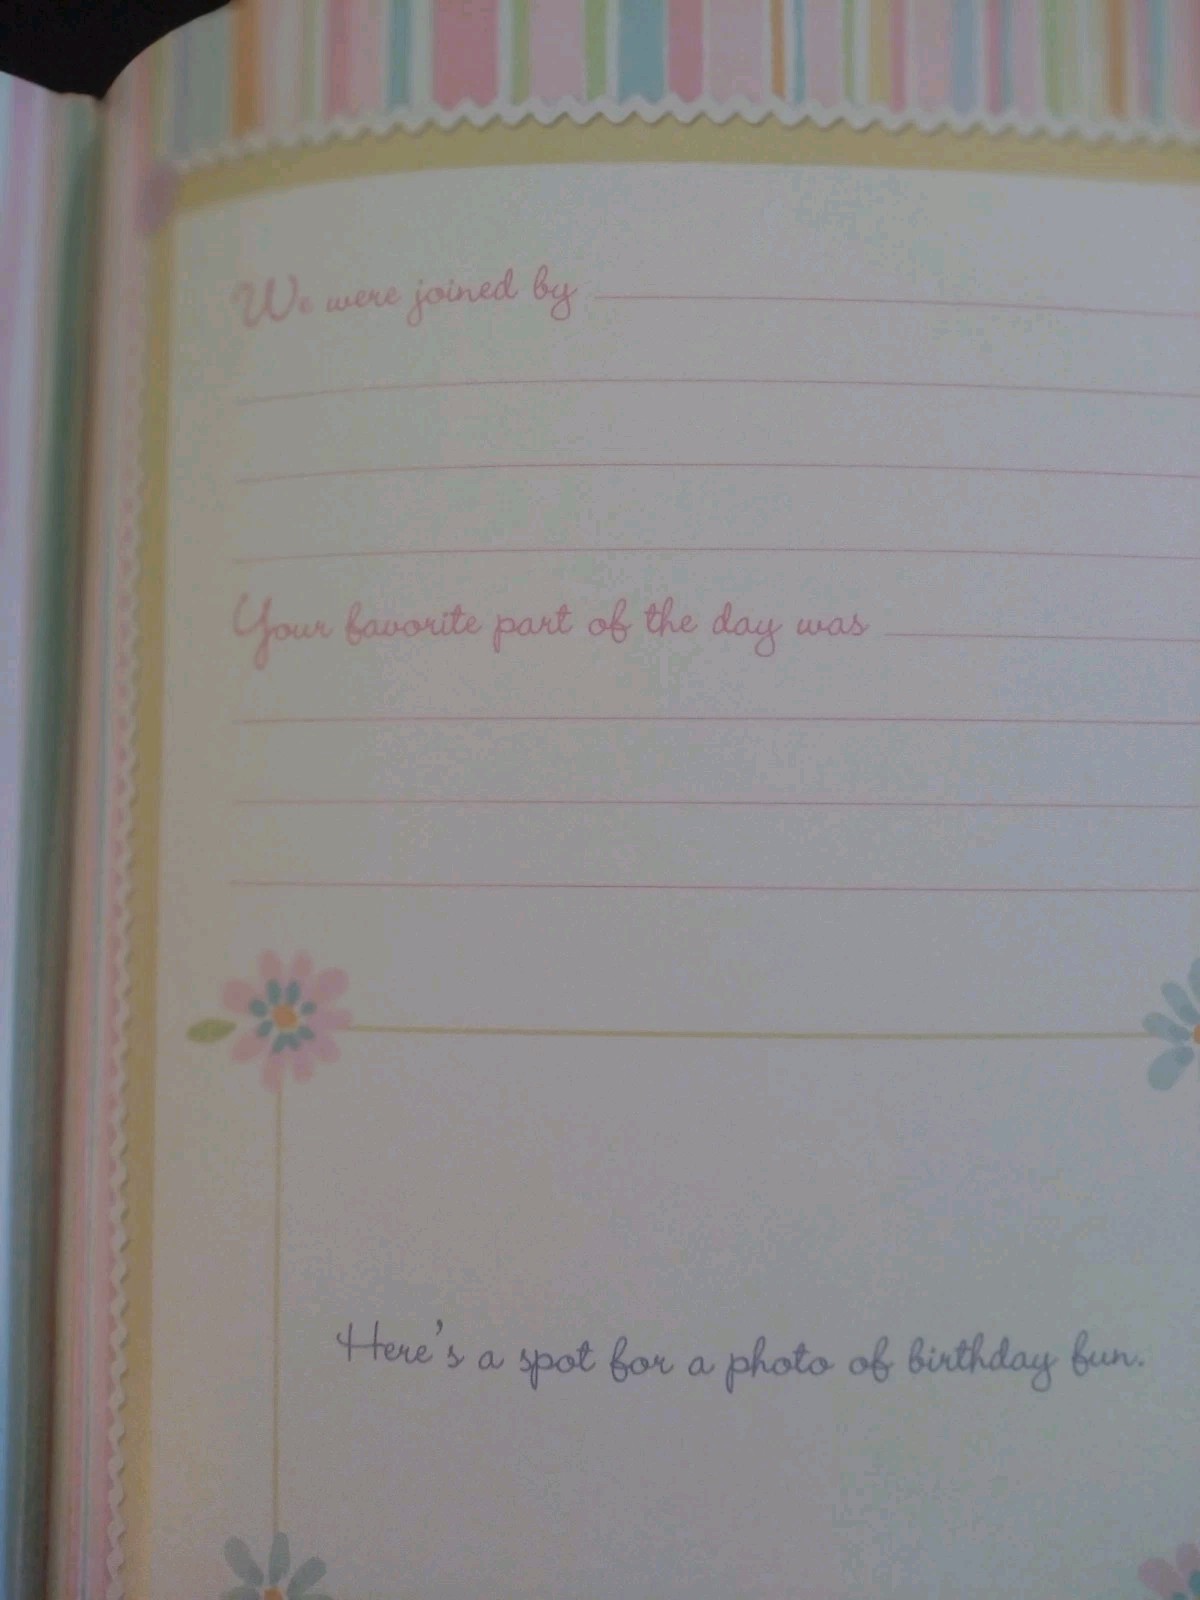 We were joined by
Your favorite part of the day was
Here's a spot for a photo of birthday fun.